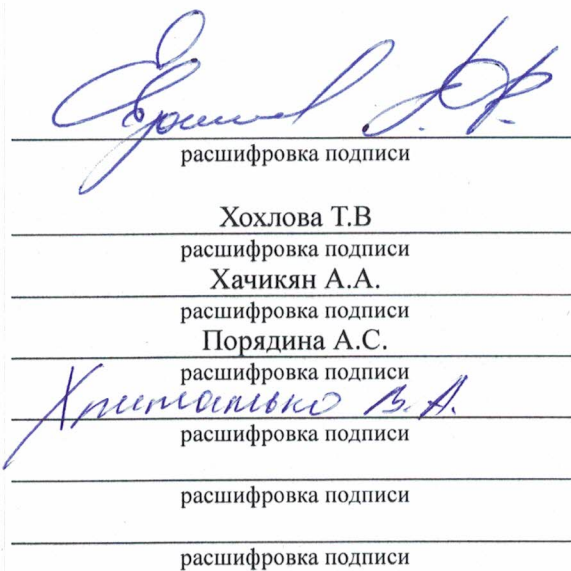 расшифровка подписи
Хохлова Т.В
расшифровка подписи
Хачикян А.А.
расшифровка подписи
Порядина А.С.
расшифровка подписи
В.А.
расшифровка подписи
расшифровка подписи
расшифровка подписи